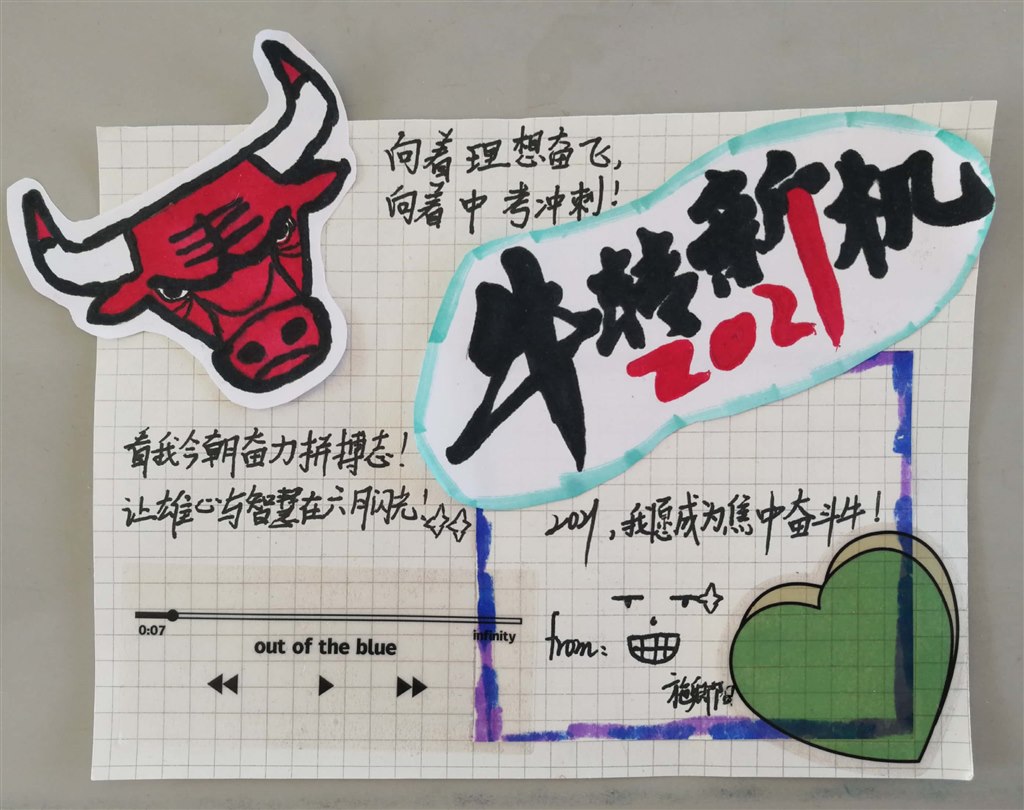 向着理想奋飞,
向着中考冲刺!
牛转新机
2021
看我今朝奋力拼搏志!
让雄心与智慧在六月闪光!
2021,我愿成为焦中奋斗牛!
0:07
infinity
out of the blue
from: